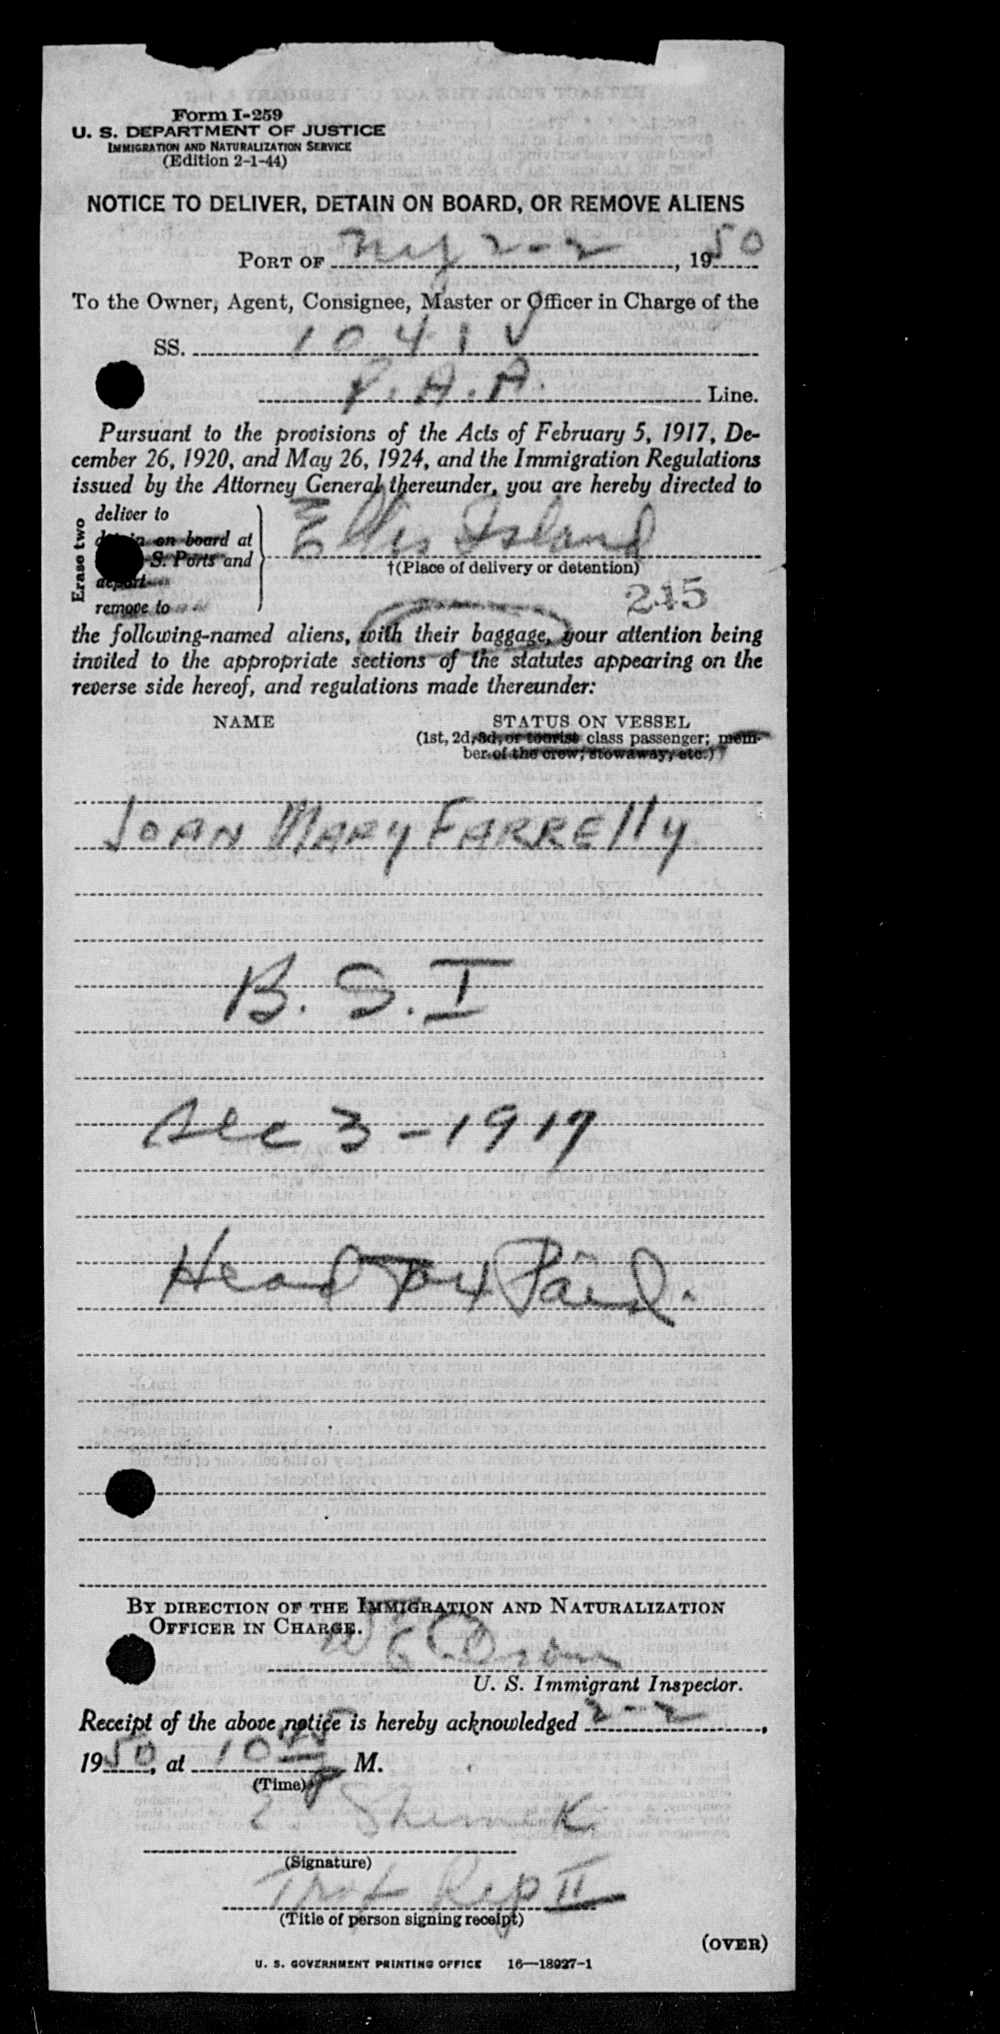 Form I-259
U. S. DEPARTMENT OF JUSTICE
IMMIGRATION AND NATURALIZATION SERVICE
(Edition 2-1-44)
NOTICE TO DELIVER, DETAIN ON BOARD, OR REMOVE ALIENS
PORT OF NY 2-2, 1950
To the Owner, Agent, Consignee, Master or Officer in Charge of the
SS. 1041 V
P.A.A. Line.
Pursuant to the provisions of the Acts of February 5, 1917, De-
cember 26, 1920, and May 26, 1924, and the Immigration Regulations
issued by the Attorney General thereunder, you are hereby directed to
Erase two
deliver to
detain on board at
S. Ports and
deport
remove to
Ellis Island
†(Place of delivery or detention)
245
the following-named aliens, with their baggage, your attention being
invited to the appropriate sections of the statutes appearing on the
reverse side hereof, and regulations made thereunder:
NAME
STATUS ON VESSEL
(1st, 2d, 3d, or tourist class passenger; mem-
ber of the crew; stowaway, etc.)
JOAN MARY FARRElly
B. S. I
Sec 3 - 1917
Head Tax Paid.
BY DIRECTION OF THE IMMIGRATION AND NATURALIZATION
OFFICER IN CHARGE.
U. S. Immigrant Inspector.
Receipt of the above notice is hereby acknowledged 2-2,
1950, at 10 45 P M.
(Time)
(Signature)
Traf Rep II
(Title of person signing receipt)
(OVER)
U. S. GOVERNMENT PRINTING OFFICE 16—18027-1